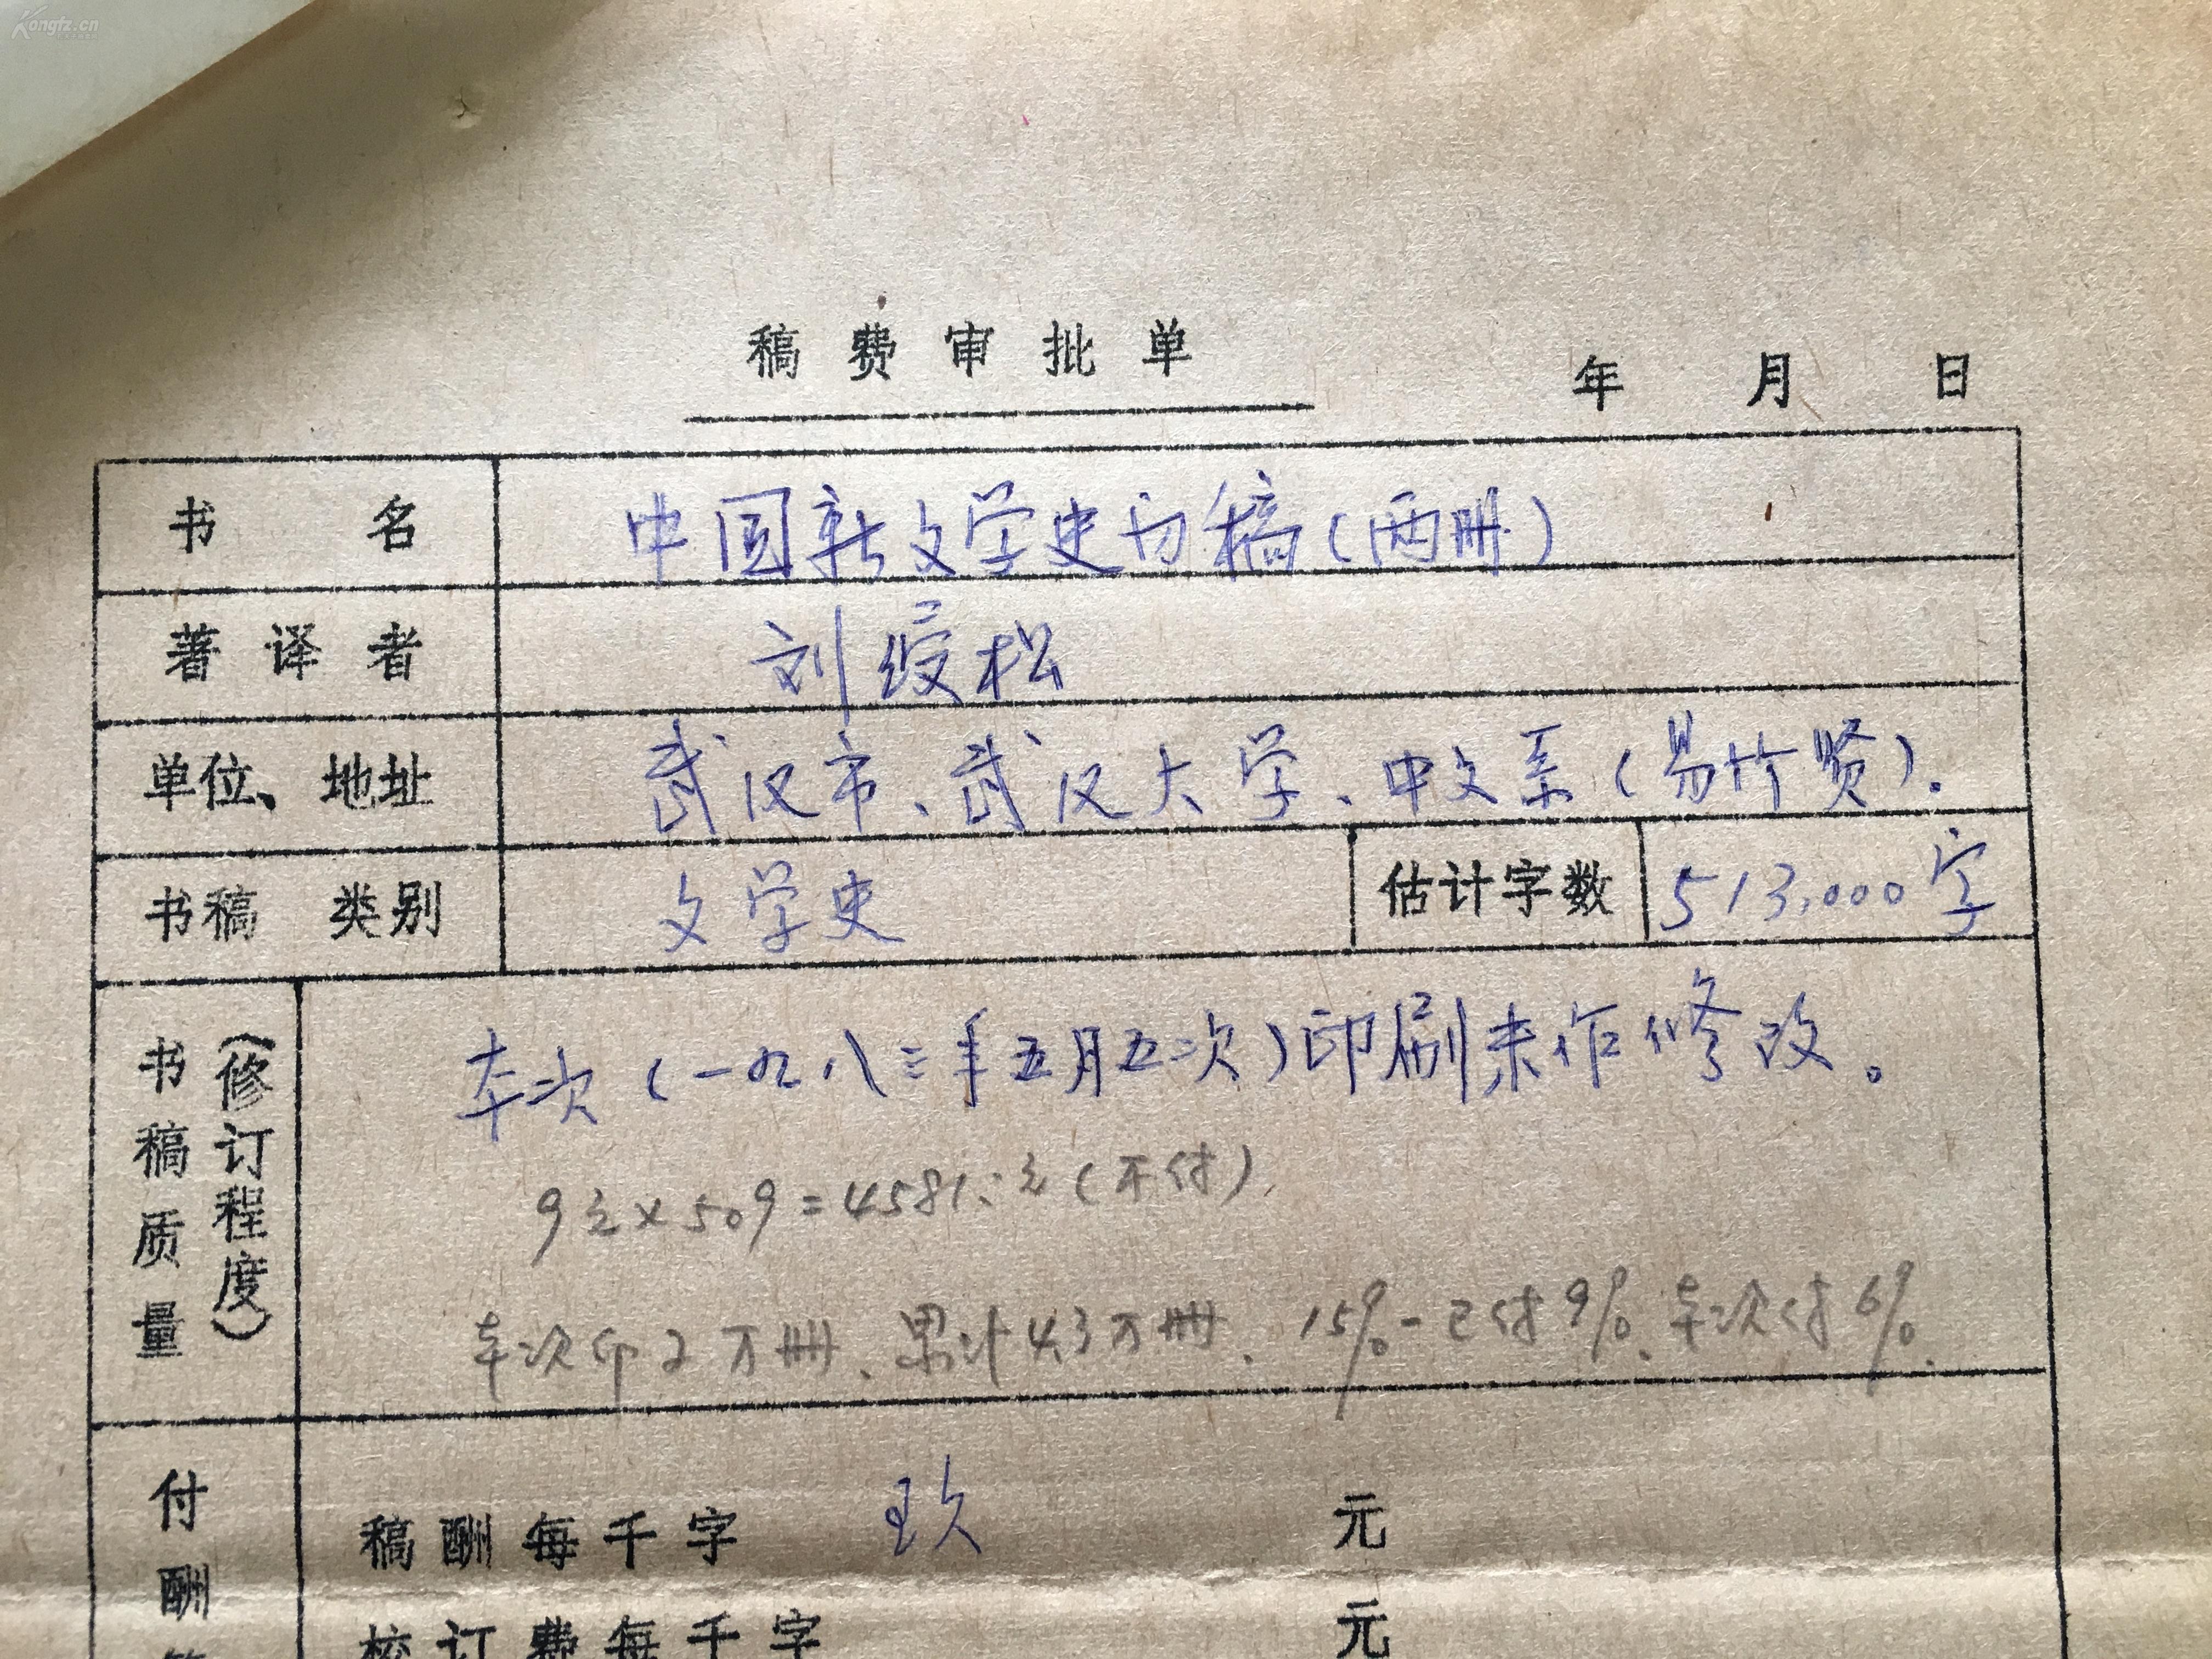 Kongfz.cn
稿费审批单
年 月 日
书名 中国新文学史初稿(两册)
著译者 刘绶松
单位、地址 武汉市、武汉大学、中文系(易竹贤).
书稿类别 文学史 估计字数 513,000字
书稿质量(修订程度) 本次(一九八三年五月五次)印刷未作修改。
9元×509=4581.元(不付)
本次印2万册、累计4.3万册、15%-已付9%、本次付6%.
付酬
稿酬每千字 玖 元
校订费每千字 元